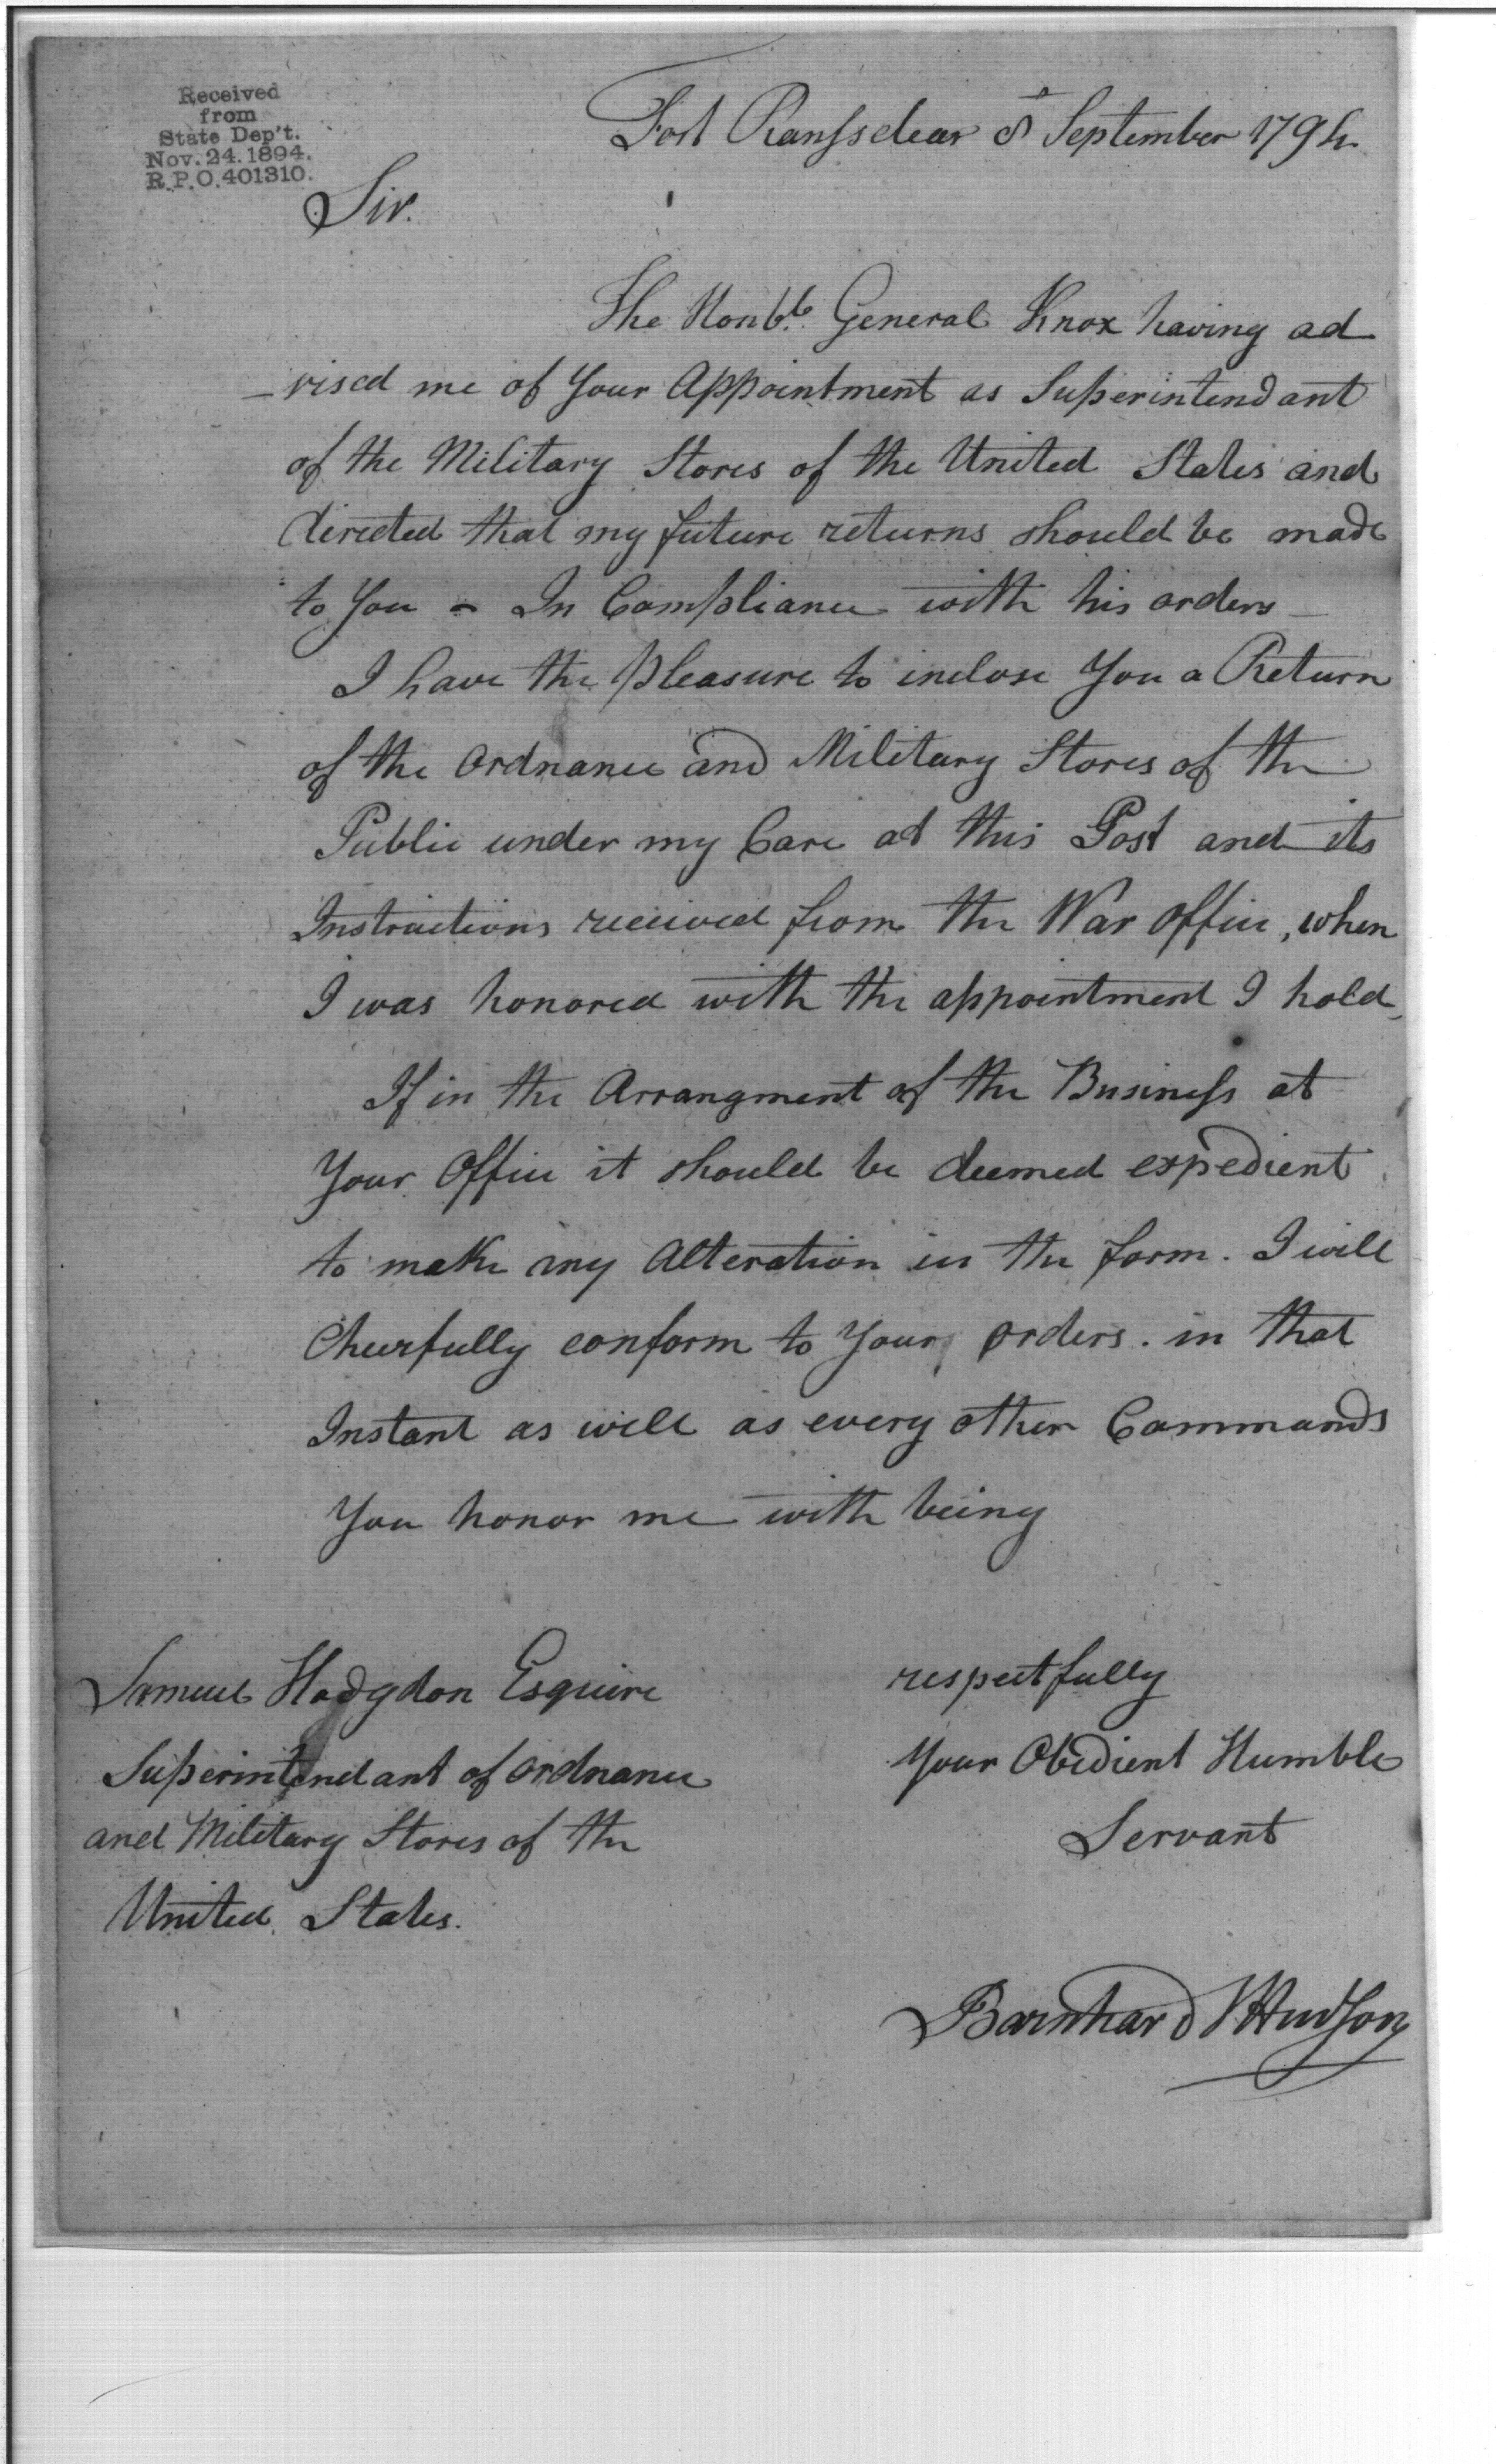 Received
from
State Dep't.
Nov. 24. 1894.
R.P.O. 401310.
Fort Ransselear 8 September 1794
Sir.
The Honble. General Knox having ad
-vised me of Your Appointment as Superintendant
of the Military Stores of the United States and
directed that my future returns should be made
to You - In Compliance with his orders -
I have the pleasure to inclose You a Return
of the Ordnance and Military Stores of the
Public under my Care at this Post and its
Instructions received from the War Office, when
I was honored with the appointment I hold,
If in the Arrangment of the Business at
Your Office it should be deemed expedient
to make any Alteration in the form. I will
Cheerfully conform to Your orders. in that
Instant as well as every other Commands
You honor me with being
respectfully
Your Obedient Humble
Servant
Samuel Hodgdon Esquire
Superintendant of Ordnance
and Military Stores of the
United States.
Barnhard Hudson